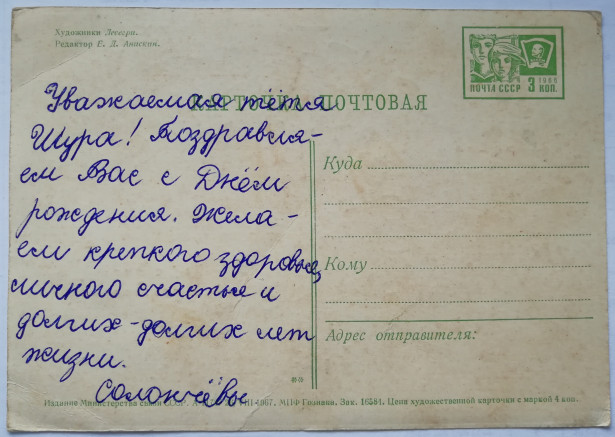 Художники Лесегри.
Редактор Е. Л. Анискин.
1966
ПОЧТА СССР 3 КОП.
КАРТОЧКА ПОЧТОВАЯ
Уважаемая тётя
Шура! Поздравля-
ем Вас с Днём
рождения. Жела-
ем крепкого здоровья,
личного счастья и
долгих-долгих лет
жизни.
Солончёвы
Куда
Кому
Адрес отправителя:
Издание Министерства связи СССР. 1967. МПФ Гознака. Зак. 16584. Цена художественной карточки с маркой 4 коп.